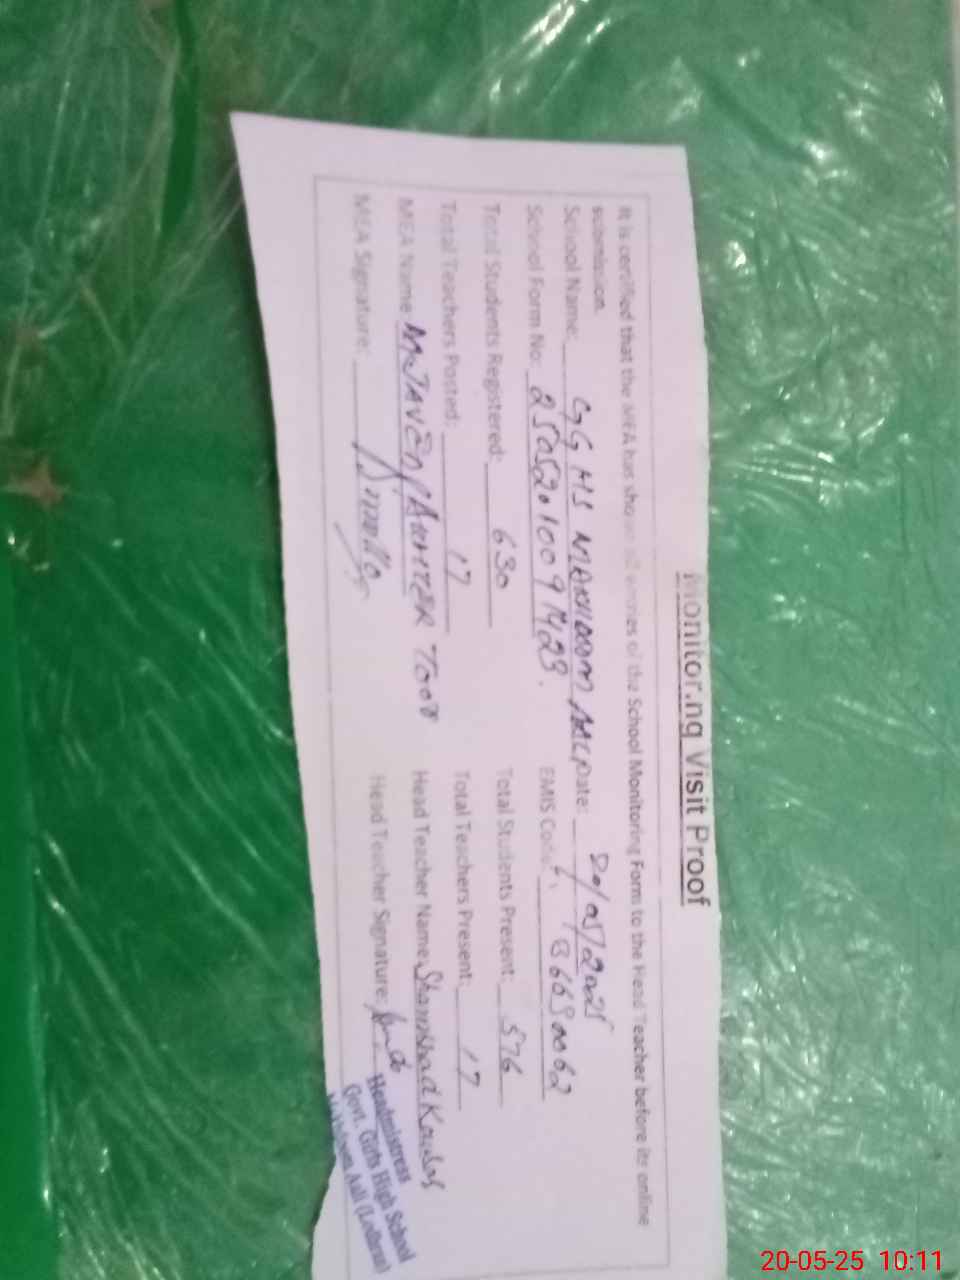 Monitoring Visit Proof
It is certified that the MEA has shown all entries of the School Monitoring Form to the Head Teacher before its online
submission.
School Name: GGHS Date: 20/05/2025
School Form No: EMIS Code:
Total Students Registered: 630 Total Students Present: 576
Total Teachers Posted: 17 Total Teachers Present: 17
MEA Name Head Teacher Name: Shamshad Kousar
MEA Signature: Head Teacher Signature:
Headmistress
Govt. Girls High School
Adil (Lodhran)
20-05-25 10:11